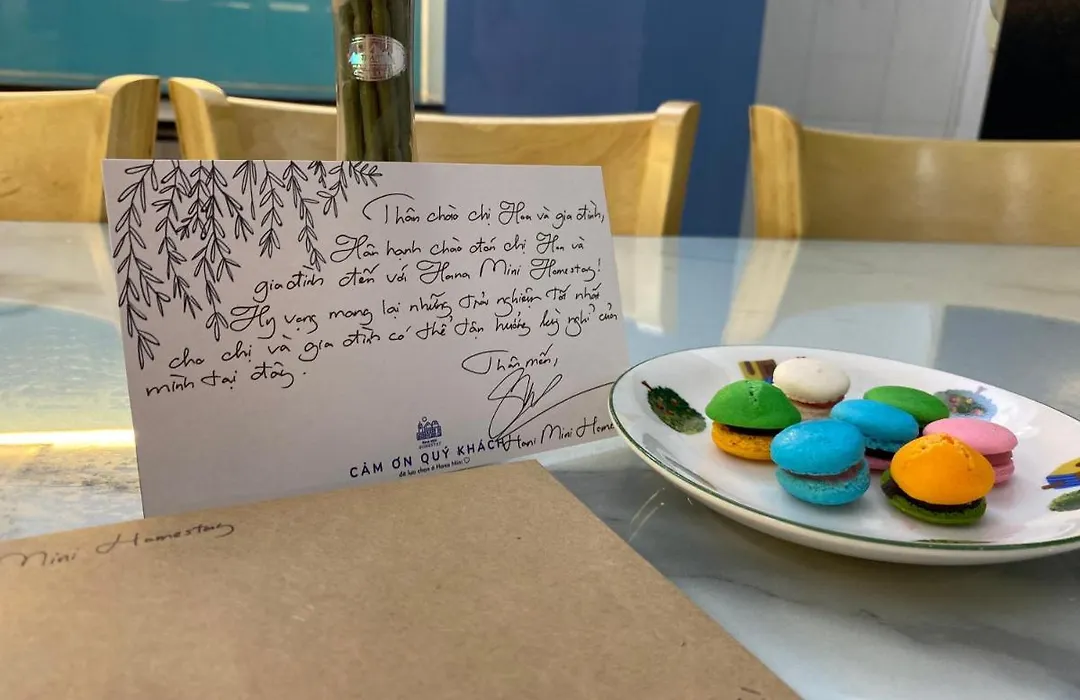 Thân chào chị Hoa và gia đình,
Hân hạnh chào đón chị Hoa và
gia đình đến với Hana Mini Homestay!
Hy vọng mang lại những trải nghiệm tốt nhất
cho chị và gia đình có thể tận hưởng kỳ nghỉ của
mình tại đây.
Thân mến,
Hani Mini Home
CẢM ƠN QUÝ KHÁCH
đã lựa chọn ở Hana Mini
Mini Homestay